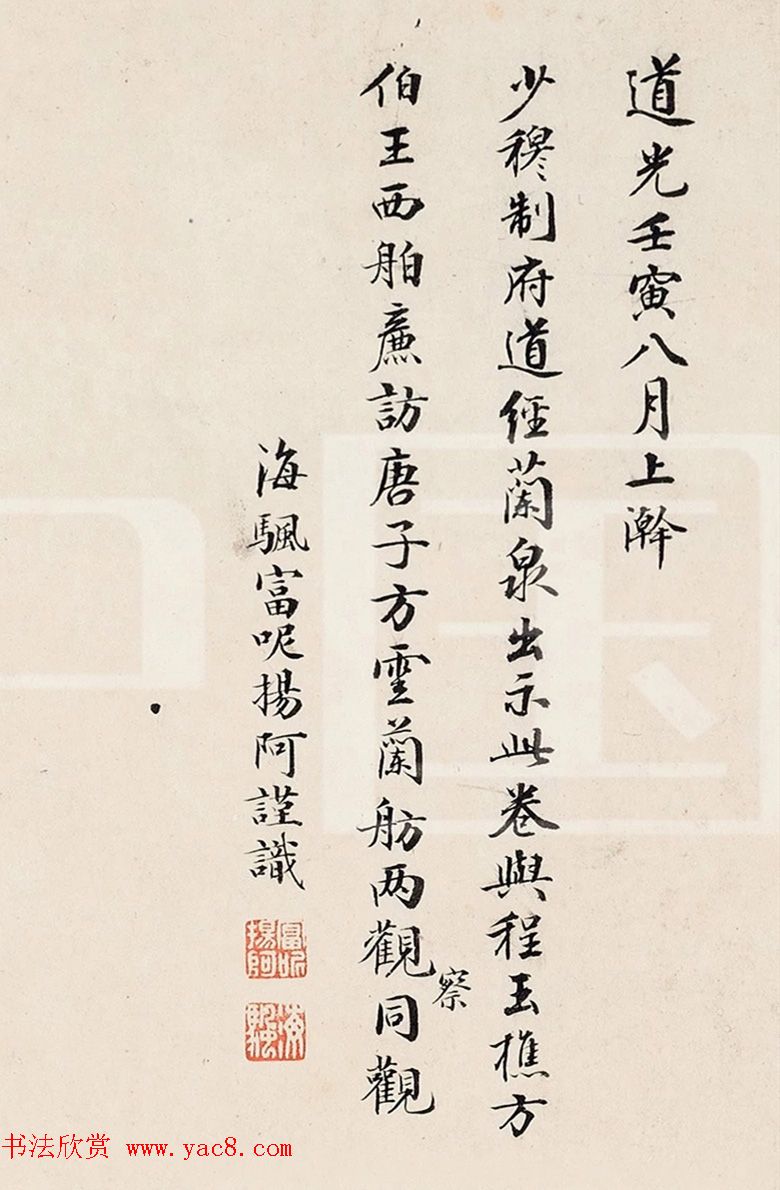 道光壬寅八月上澣
少穆制府道經蘭泉出示此卷與程玉樵方
伯王西舶廉訪唐子方雲蘭舫兩觀同觀
察
海颿富呢揚阿謹識
富呢揚阿
海颿
书法欣赏 www.yac8.com